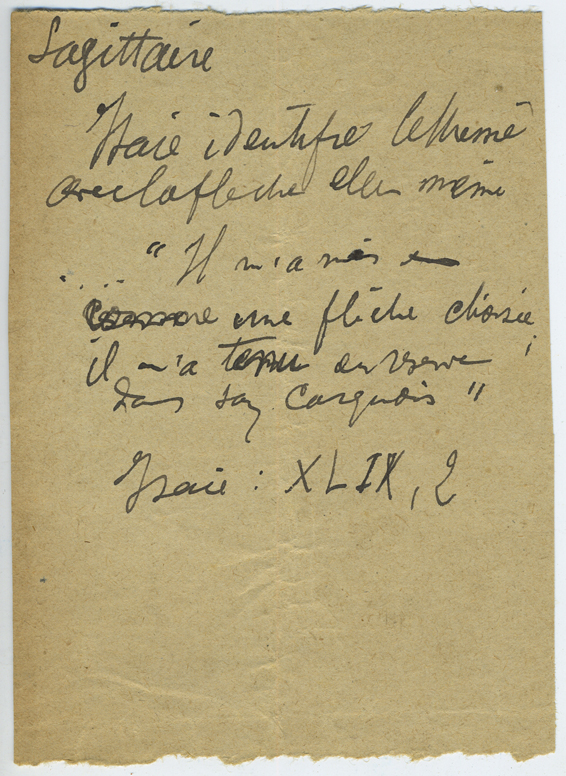 Sagittaire
Isaïe identifie le thème
avec la flèche elle même
.... " Il m'a mis
comme une flèche choisie,
il m'a tenu en réserve
dans son carquois "
Isaïe : XLIX, 2